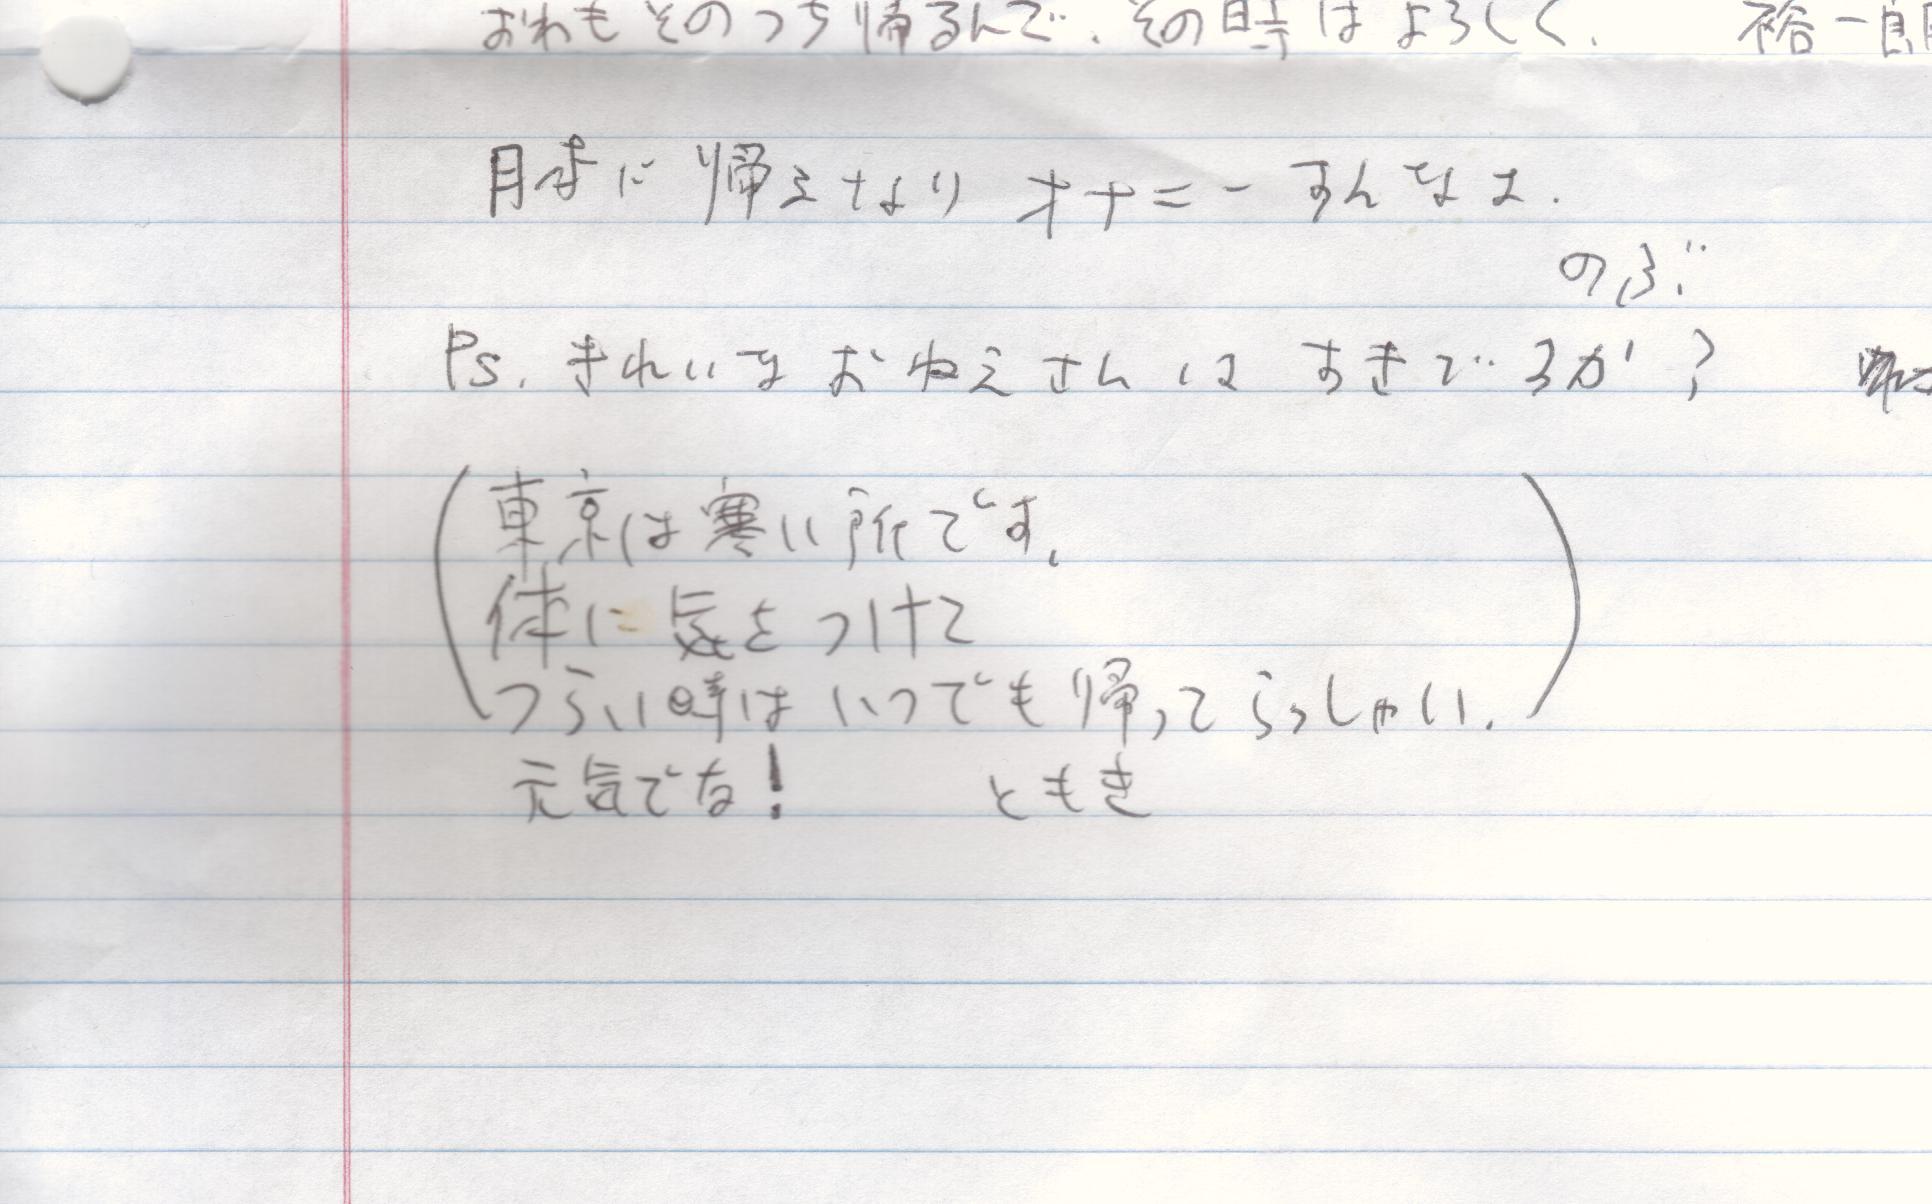 おれもそのうち帰るんで、その時はよろしく. 裕一郎
日本に帰えるなり オナニーすんなよ.
のぶ
Ps. きれいなおねえさんは すきでるか?
(東京は寒い所です.
体に気をつけて
つらい時は いつでも帰ってらっしゃい.)
元気でな! ともき